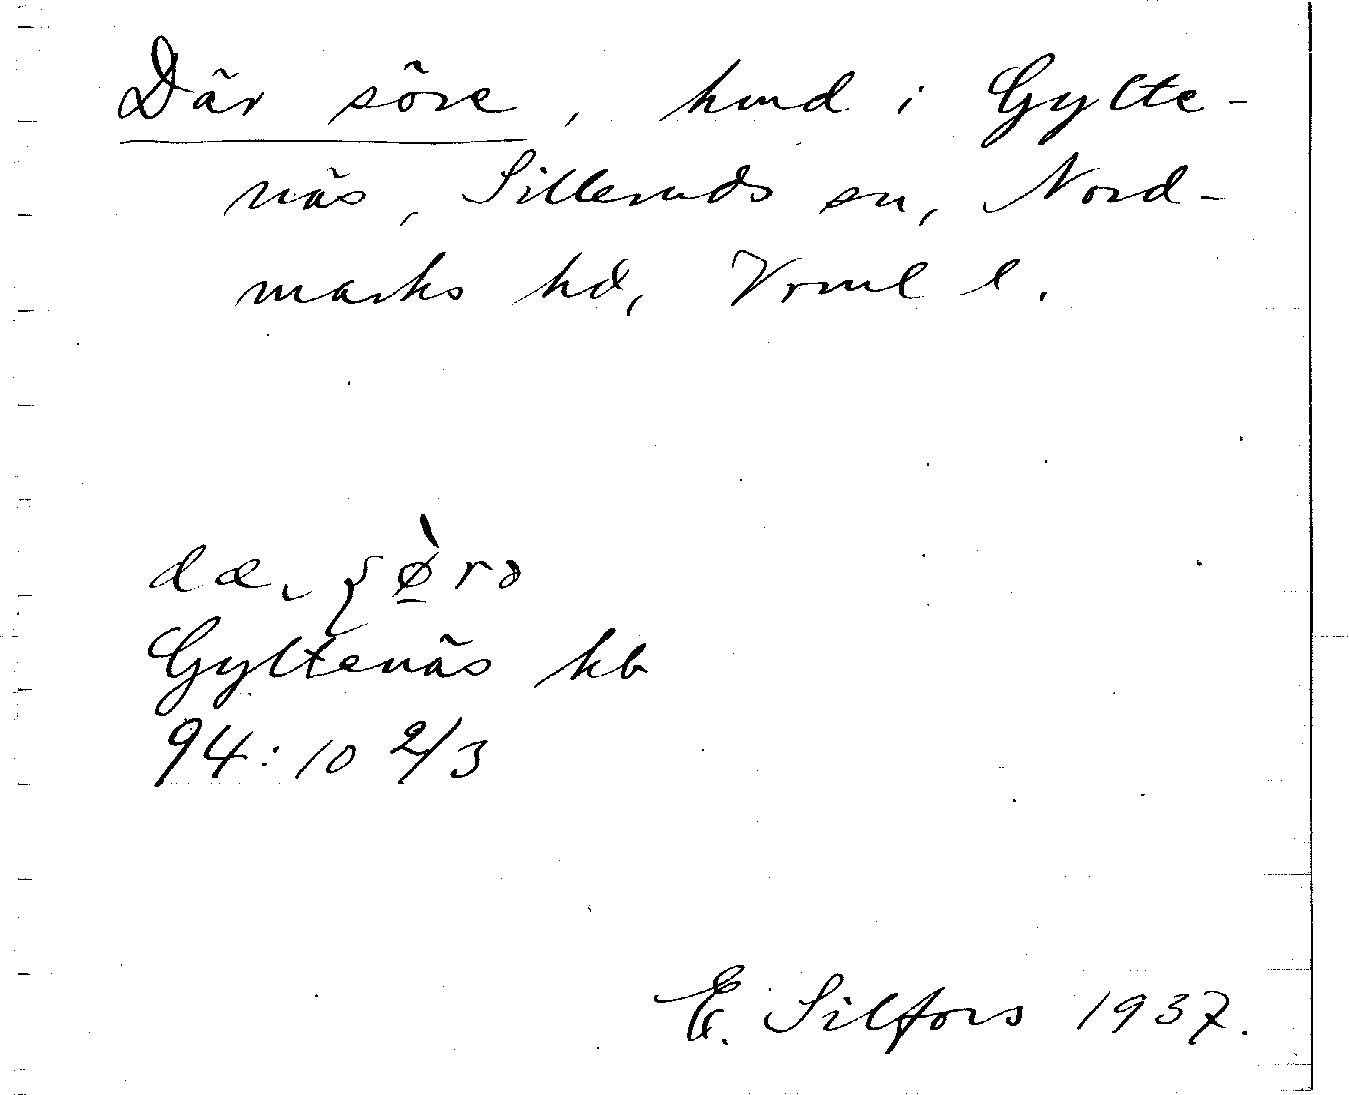 Där söre, hmd i Gylte-
näs, Silleruds sn, Nord-
marks hd, Vrml l.
dæ, ʂø̱̀rə
Gyltenäs hb
94:10 2/3
E. Silfors 1937.